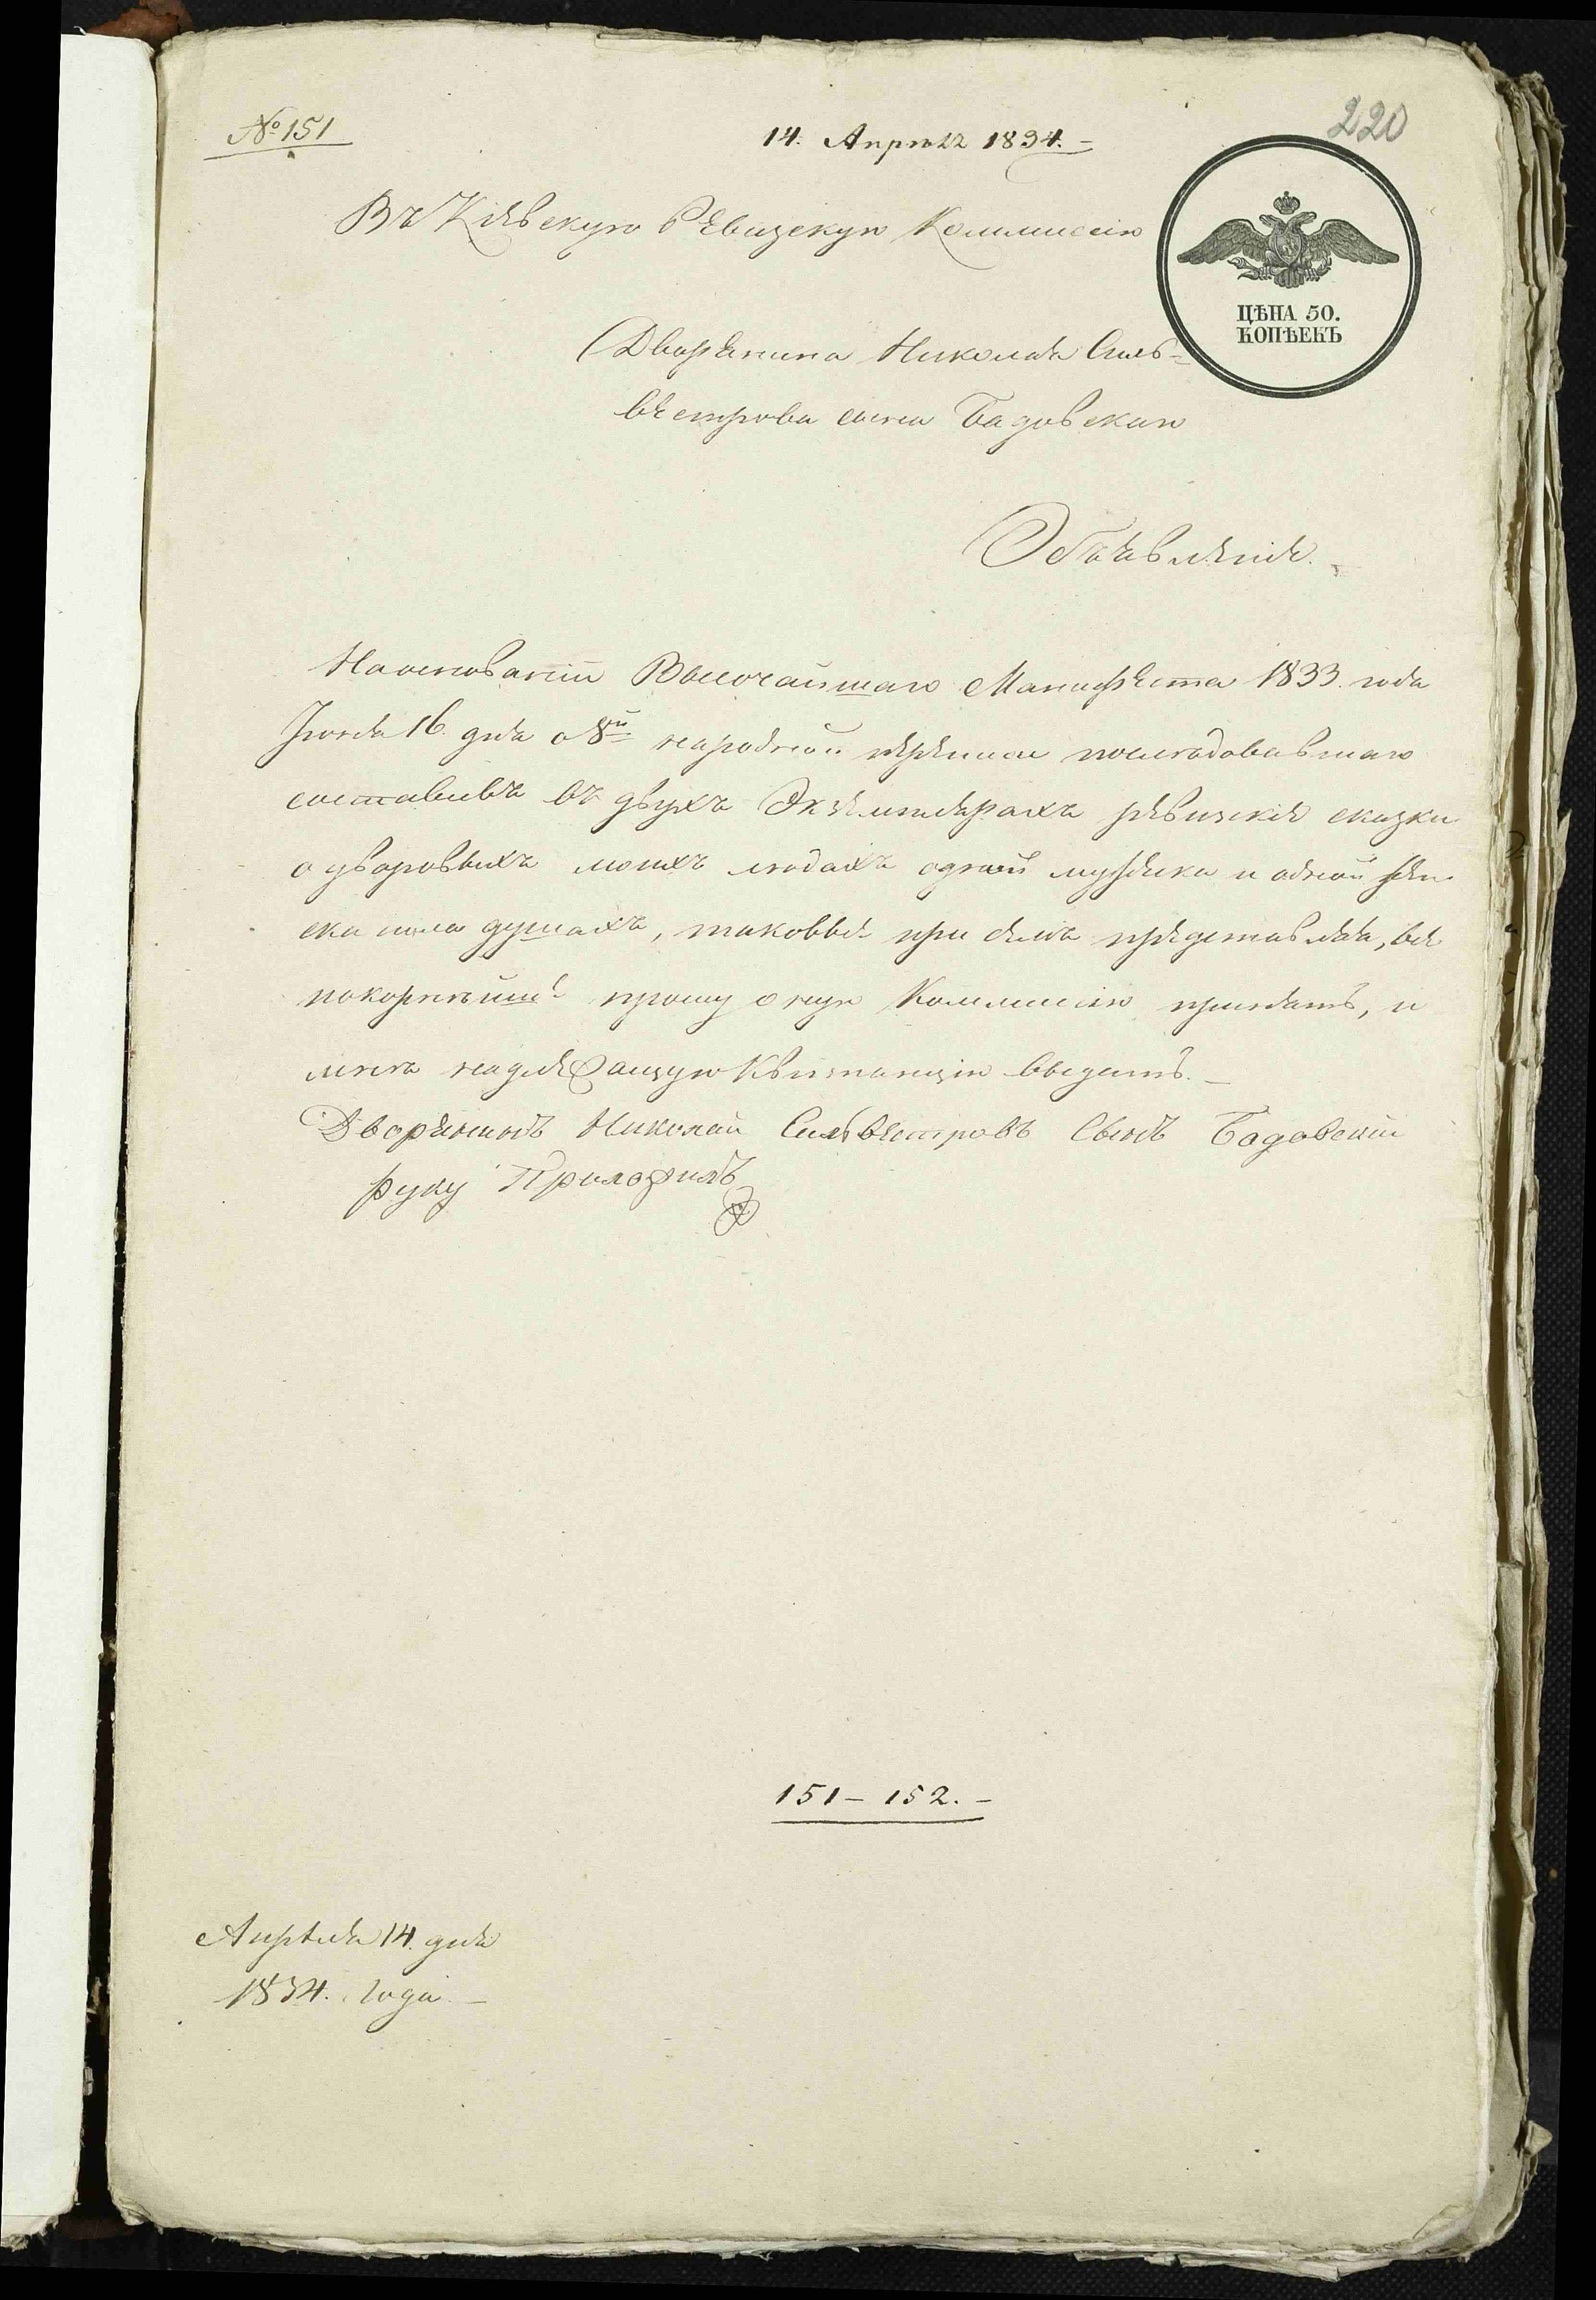 № 151
220
14. Апрѣля 1834. -
Въ Кіевскую Ревизскую Коммиссію
ЦѢНА 50.
КОПѢЕКЪ
Дворянина Николая Силь-
вестрова сына Бадовскаго
Объявленіе.
На основаніи Высочайшаго Манифеста 1833. года
Іюня 16 дня о 8й народной переписи последовавшаго
составивъ въ двухъ Экземплярахъ ревизскія сказки
о дворовыхъ моихъ людяхъ одной мужеска и одной жен
ска пола душахъ, таковые при семъ представляя, все
покорнѣйше прошу оную Коммиссію принять, и
мнѣ надлежащую Квитанцію выдать. -
Дворянинъ Николай Силвестровъ Сынъ Бадовскій
руку Приложилъ
151 - 152. -
Апрѣля 14. дня
1834. года -